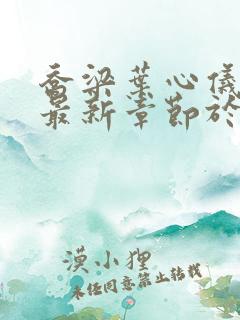 乔梁叶心仪
最新章节於
漠小狸
未经同意禁止转载